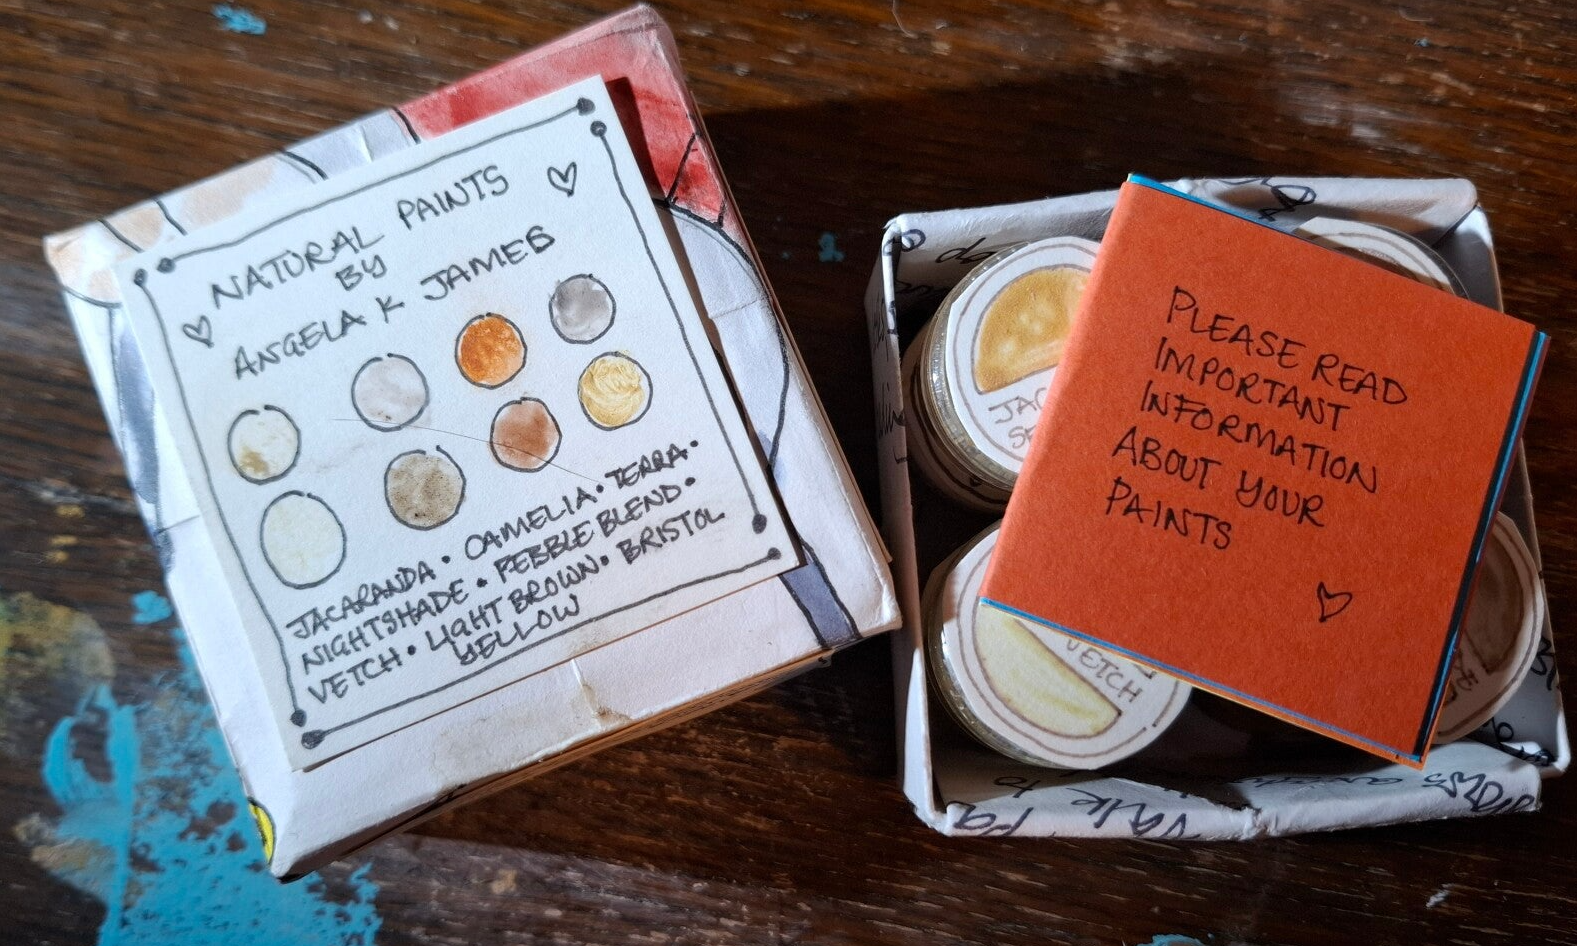 NATURAL PAINTS
BY
ANGELA K JAMES
JACARANDA • CAMELIA • TERRA •
NIGHTSHADE • PEBBLE BLEND •
VETCH • LIGHT BROWN • BRISTOL
YELLOW
PLEASE READ
IMPORTANT
INFORMATION
ABOUT YOUR
PAINTS
VETCH